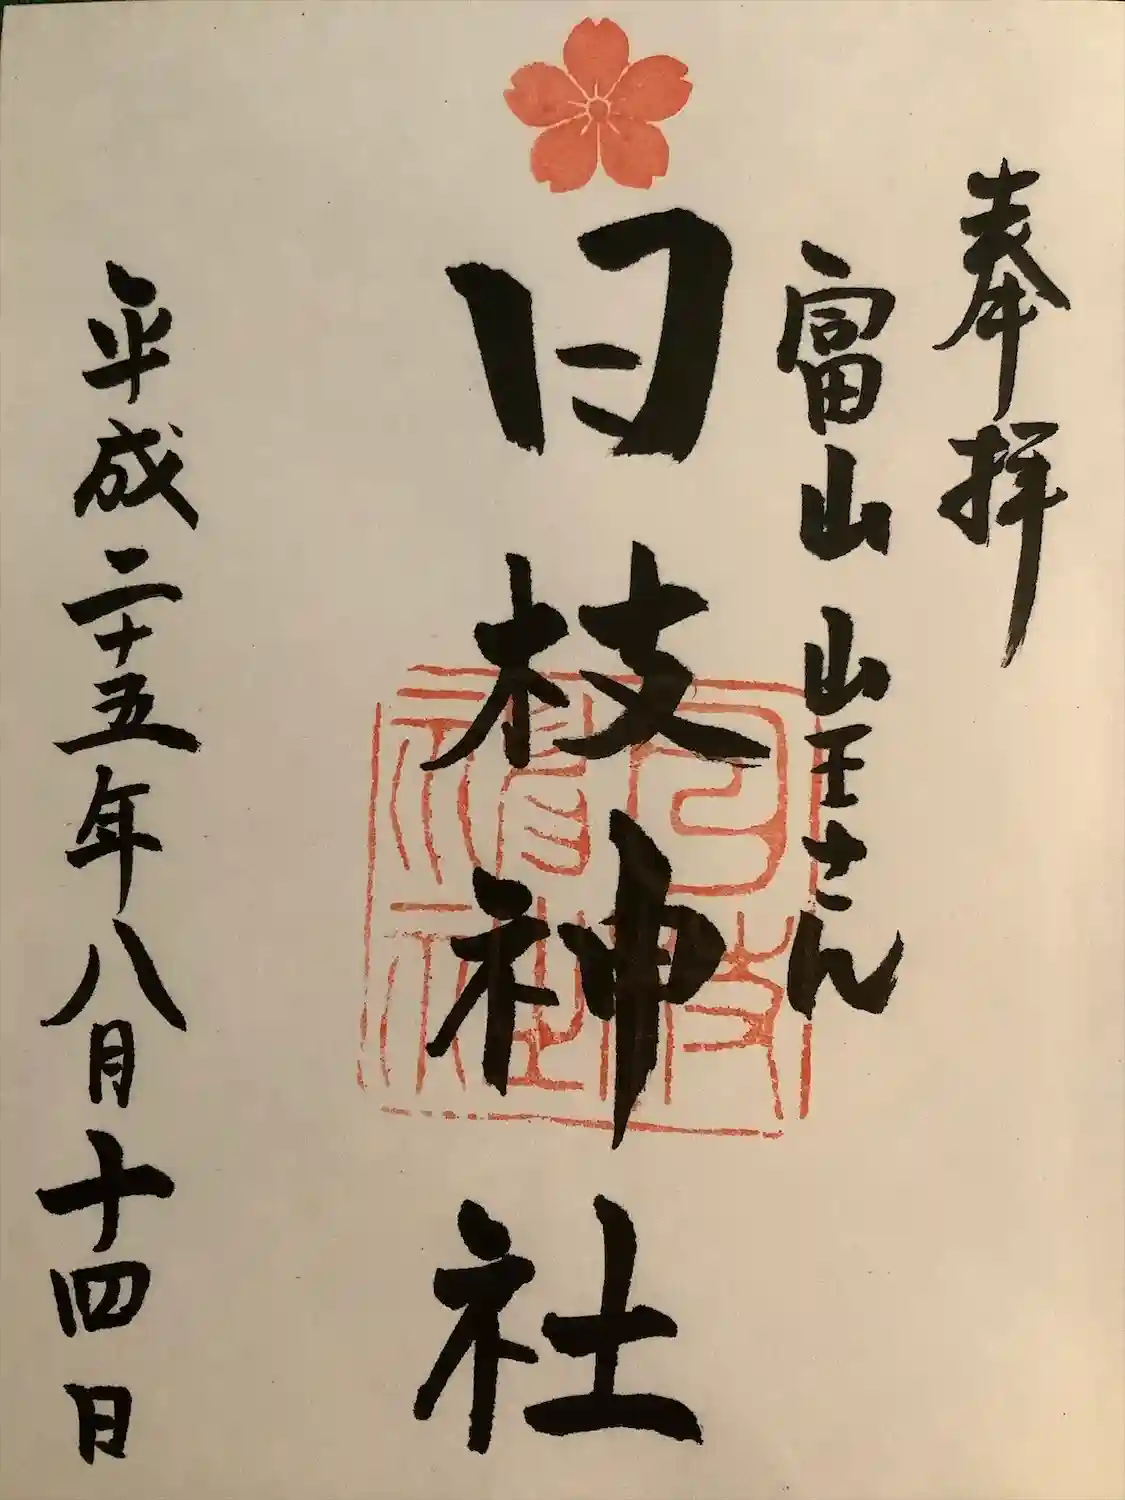 奉拝
富山 山王さん
日枝神社
平成二十五年八月十四日